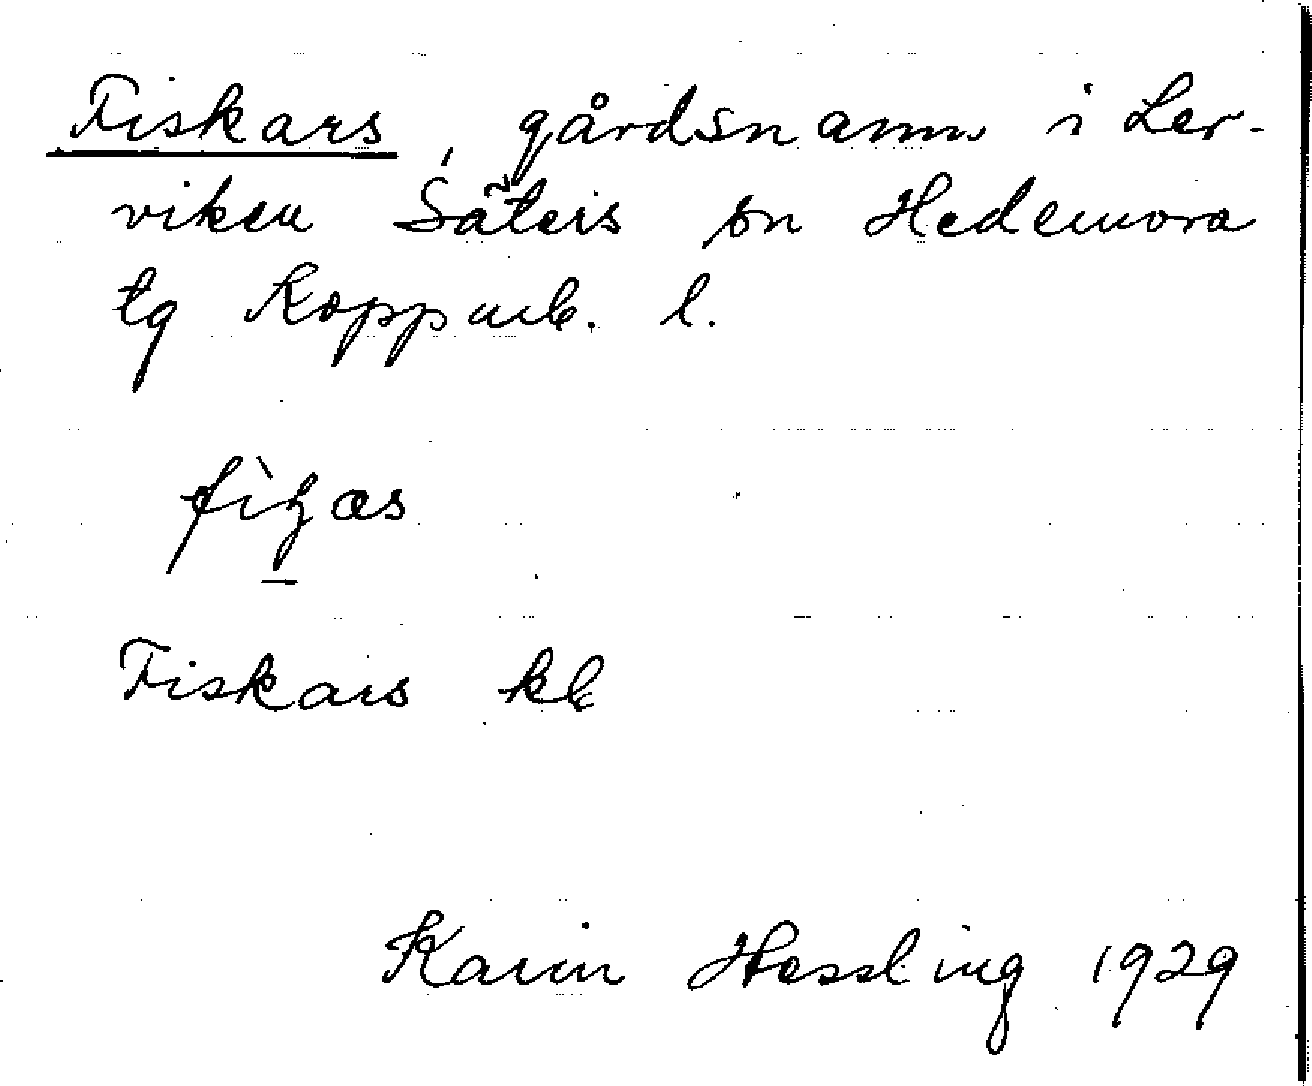 Fiskars, gårdsnamn i Ler-
viken Säters sn Hedemora
tg Kopparb. l.
Fiskars kb
Karin Hessling 1929